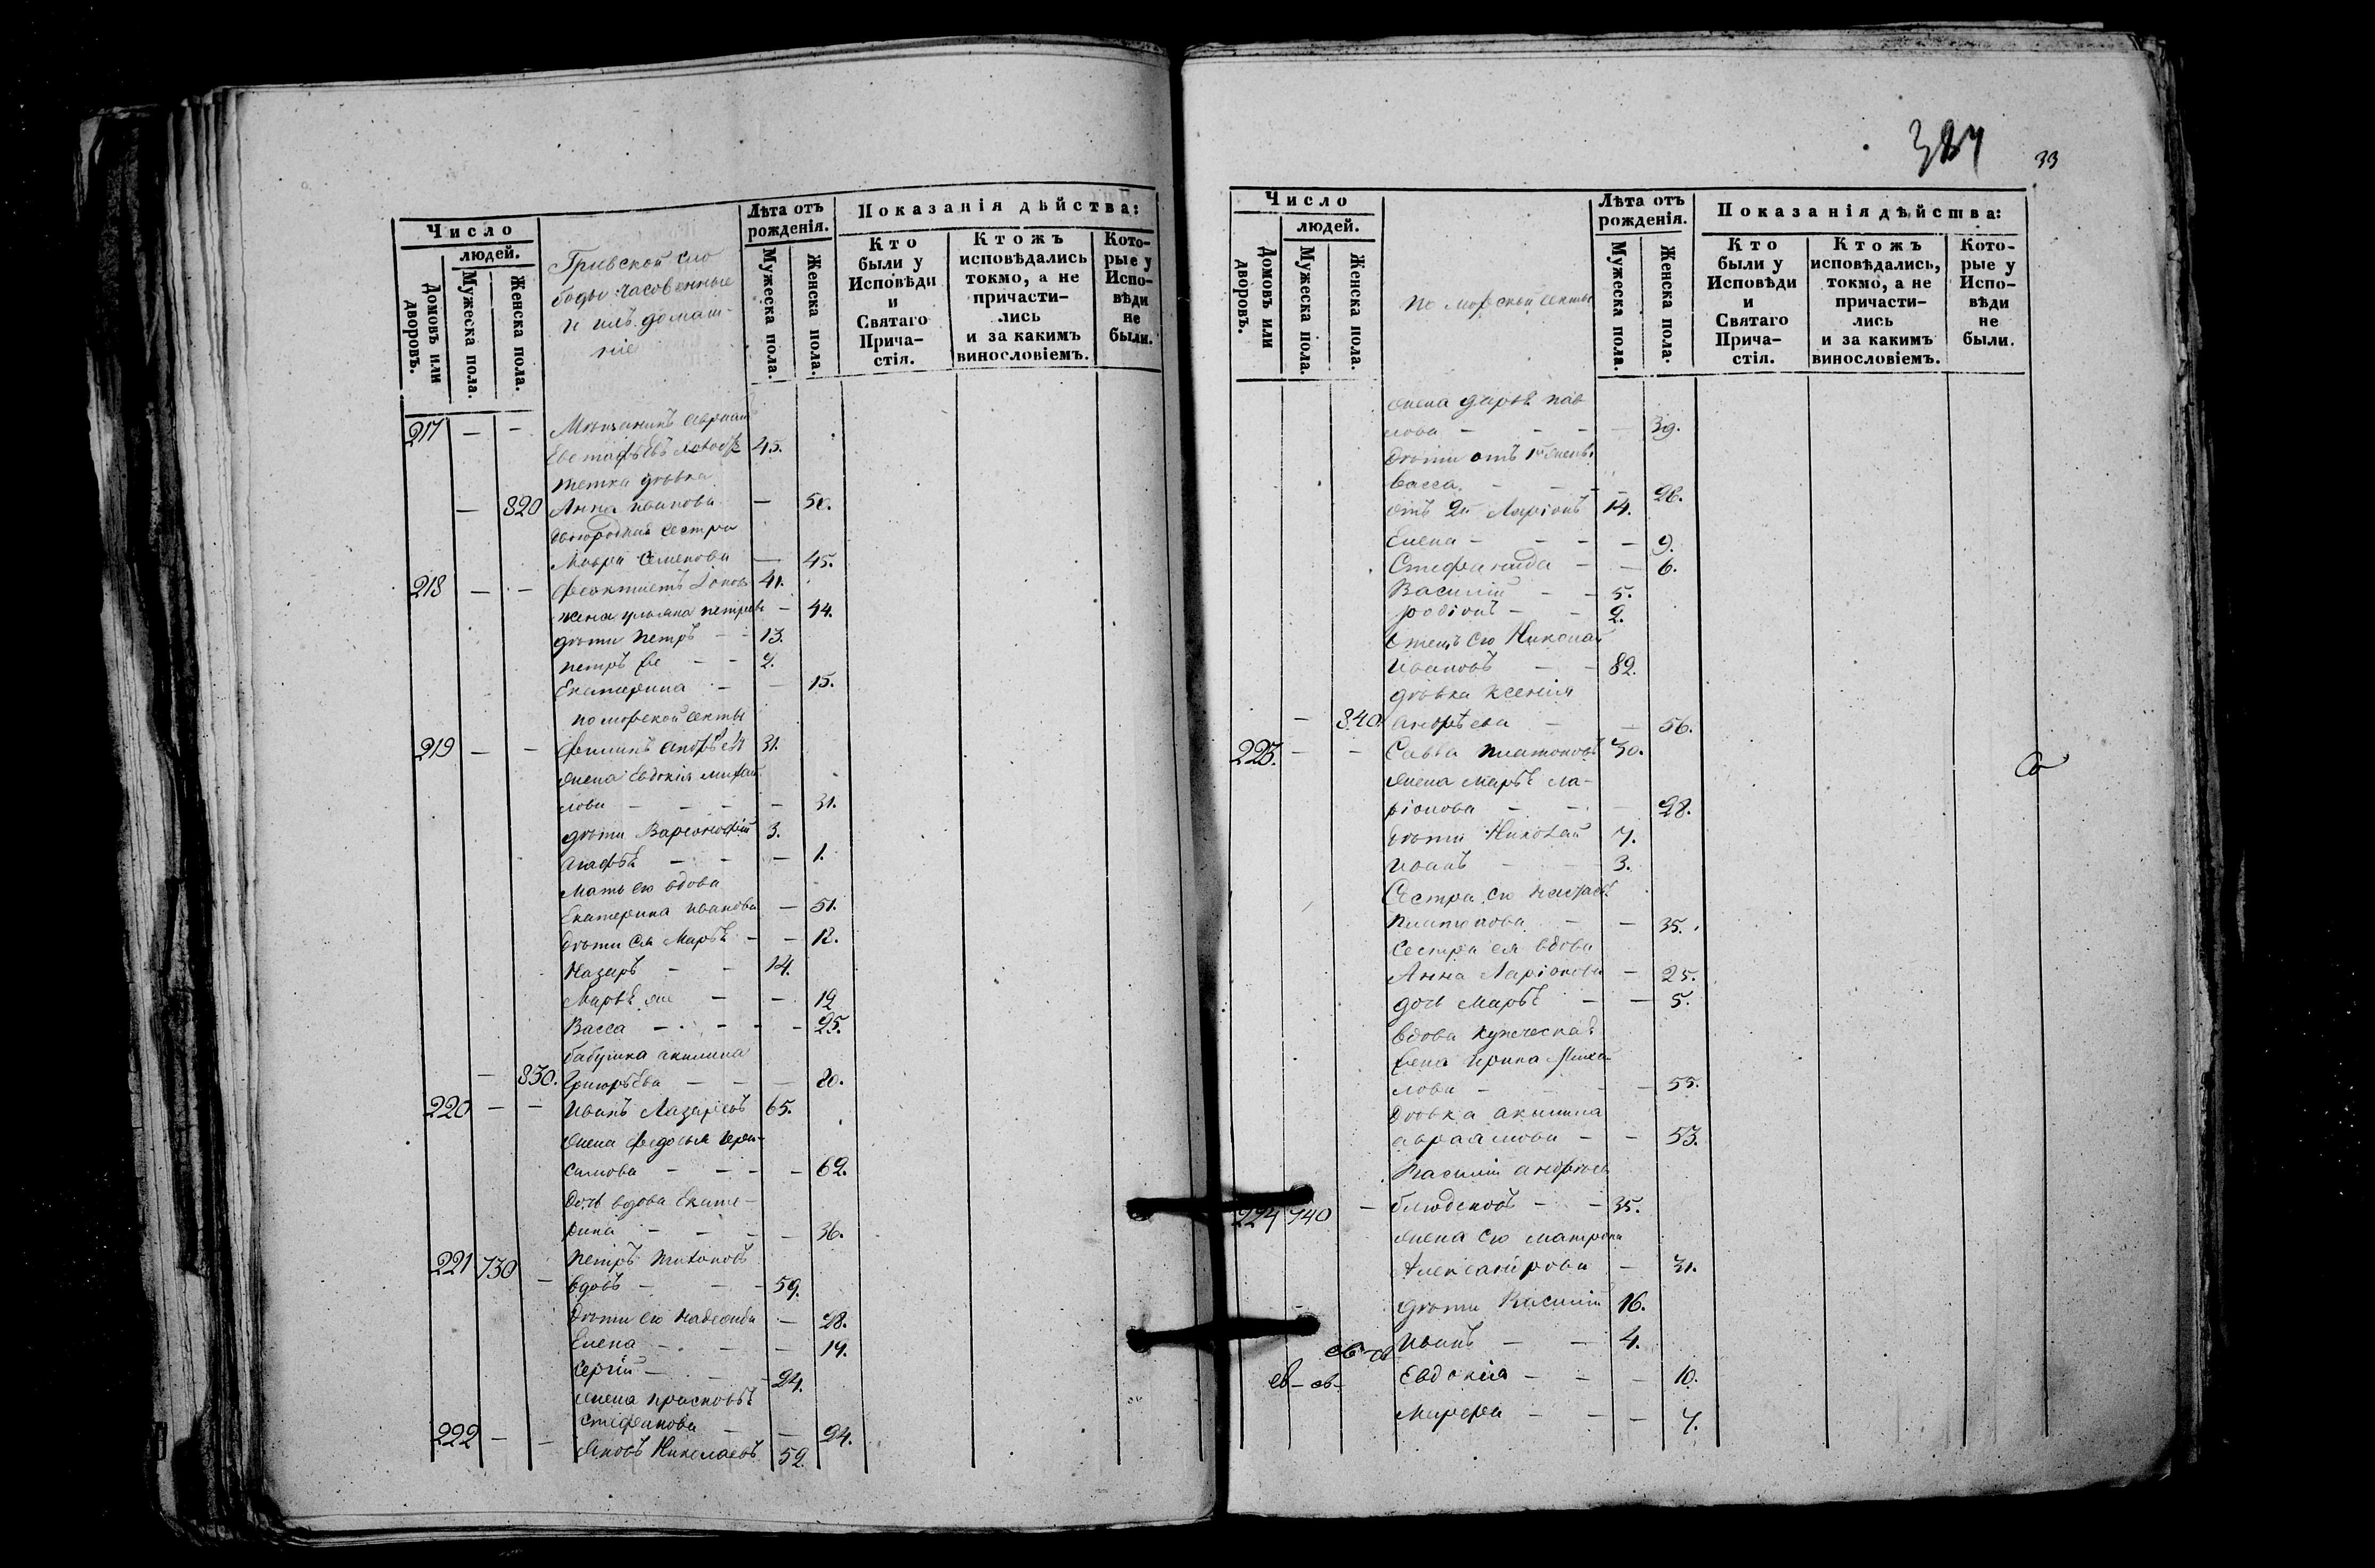 Число
людей.
Домовъ или дворовъ.
Мужеска пола.
Женска пола.
Гривской сло
боды часовенные
и ихъ домаш-
ніе
Лѣта отъ рожденія.
Мужеска пола.
Женска пола.
Показанія дѣйства:
Кто были у Исповѣди и Святаго Прича- стія.
Ктожъ исповѣдались токмо, а не причасти- лись и за какимъ винословіемъ.
Кото- рые у Испо- вѣди не были.
217 — — Мѣщанинъ
45.
тетка дѣвка
— 820 Анна Иванова — 50.
двоюродная сестра
Мавра Семенова — 45.
218 — — Феоктистъ 41.
жена Ульяна Петрова — 44.
дѣти Петръ — — 13.
Петръ же — — 2.
Екатерина — — 15.
поморской секты
219 — — Филипъ Андрѣевъ 31.
жена Евдокія Михай
лова — — — — 31.
дѣти Варсонофій 3.
Агафья — — — 1.
Мать его вдова
Екатерина Иванова — 51.
дѣти ея Марья — — 12.
Назаръ — — 14.
Марья же — — 12
Васса — — — — 25.
бабушка Акилина
— 830. Григорьева — — — 80.
220 — — Иванъ Лазаревъ 65.
жена Федосья Гера-
симова — — — — 62.
дочь вдова Екате-
рина — — — — 36.
221 730 — Петръ
вдовъ — — — 59.
дѣти его Надежда — 28.
Елена — — — 19.
Сергій — — — 24.
жена Прасковья
Стефанова — — 24.
222 — — Яковъ Николаевъ 52.
384
33
Число
людей.
Домовъ или дворовъ.
Мужеска пола.
Женска пола.
поморской секты
Лѣта отъ рожденія.
Мужеска пола.
Женска пола.
Показанія дѣйства:
Кто были у Исповѣди и Святаго Прича- стія.
Ктожъ исповѣдались, токмо, а не причасти- лись и за какимъ винословіемъ.
Кото- рые у Испо- вѣди не были.
жена Дарья Пав
лова — — — — 39.
дѣти отъ 1й жены
Васса — — — 26.
отъ 2й Ларіонъ 14.
Елена — — — — 9.
Стефанида — — 6.
Василій — — 5.
Родіонъ — — 2.
Отецъ его Николай
Ивановъ — — 82.
дѣвка Ксенія
— 840 Андрѣева — — 56.
223. — — Савва Платоновъ 30.
жена Марья Ла-
ріонова — — — 28.
дѣти Николай 7.
Иванъ — — 3.
Сестра его
Платонова — — 35.
сестра ея вдова
Анна Ларіонова — 25.
дочь Марья — — 5.
вдова купеческая
жена Ирина Михай
лова — — — 55.
дѣвка Акилина
Авраамова — — 53.
Василій Андрѣевъ
224 740 — — — 35.
жена его Матрона
Александрова — 31.
дѣти Василій 16.
Иванъ — — 4.
Евдокія — — — 10.
Марфа — — — 7.